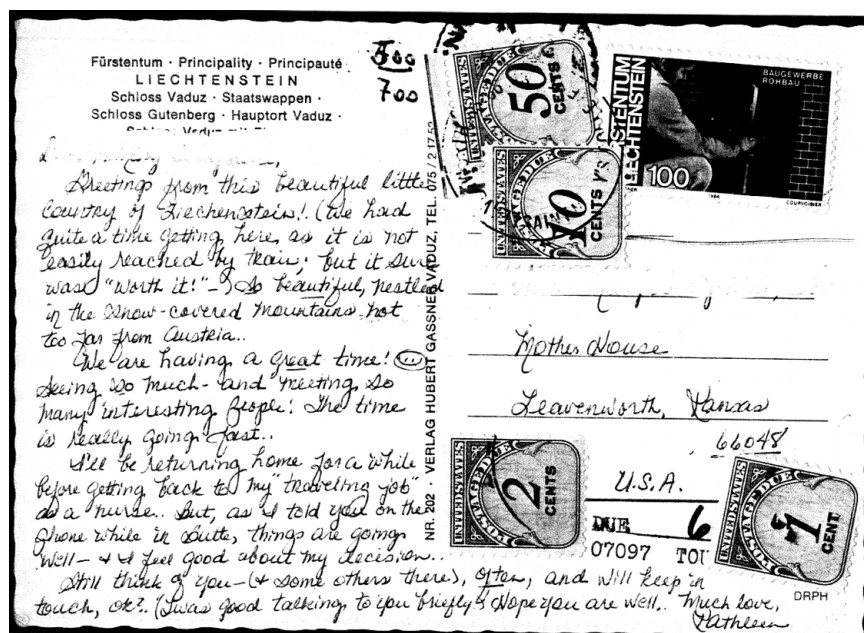 Fürstentum · Principality · Principauté
LIECHTENSTEIN
Schloss Vaduz · Staatswappen ·
Schloss Gutenberg · Hauptort Vaduz ·
700
Greetings from this beautiful little
country of Liechenstein! (We had
quite a time getting here, as it is not
easily reached by train; but it sure
was "worth it!" -) So beautiful, nestled
in the snow-covered mountains not
too far from Austria..
We are having a great time!
Seeing so much - and meeting so
many interesting people! The time
is really going fast..
I'll be returning home for a while
before getting back to my "traveling job"
as a nurse.. But, as I told you on the
phone while in Butte, things are going
well - & I feel good about my decision..
Still think of you - (& some others there), often, and will keep in
touch, ok?. (Twas good talking to you briefly & Hope you are well.. Much love,
Kathleen
NR. 202 · VERLAG HUBERT GASSNER VADUZ, TEL. 075 / 2 17 52
UNITED STATES
POSTAGE DUE
50
CENTS
UNITED STATES
POSTAGE DUE
10
CENTS
FÜRSTENTUM
LIECHTENSTEIN
BAUGEWERBE
ROHBAU
100
1984
COURVOISIER
Mother House
Leavenworth, Kansas
66048
U.S.A.
UNITED STATES
POSTAGE DUE
2
CENTS
DUE 6
07097 TOU
UNITED STATES
POSTAGE DUE
1
CENT
DRPH